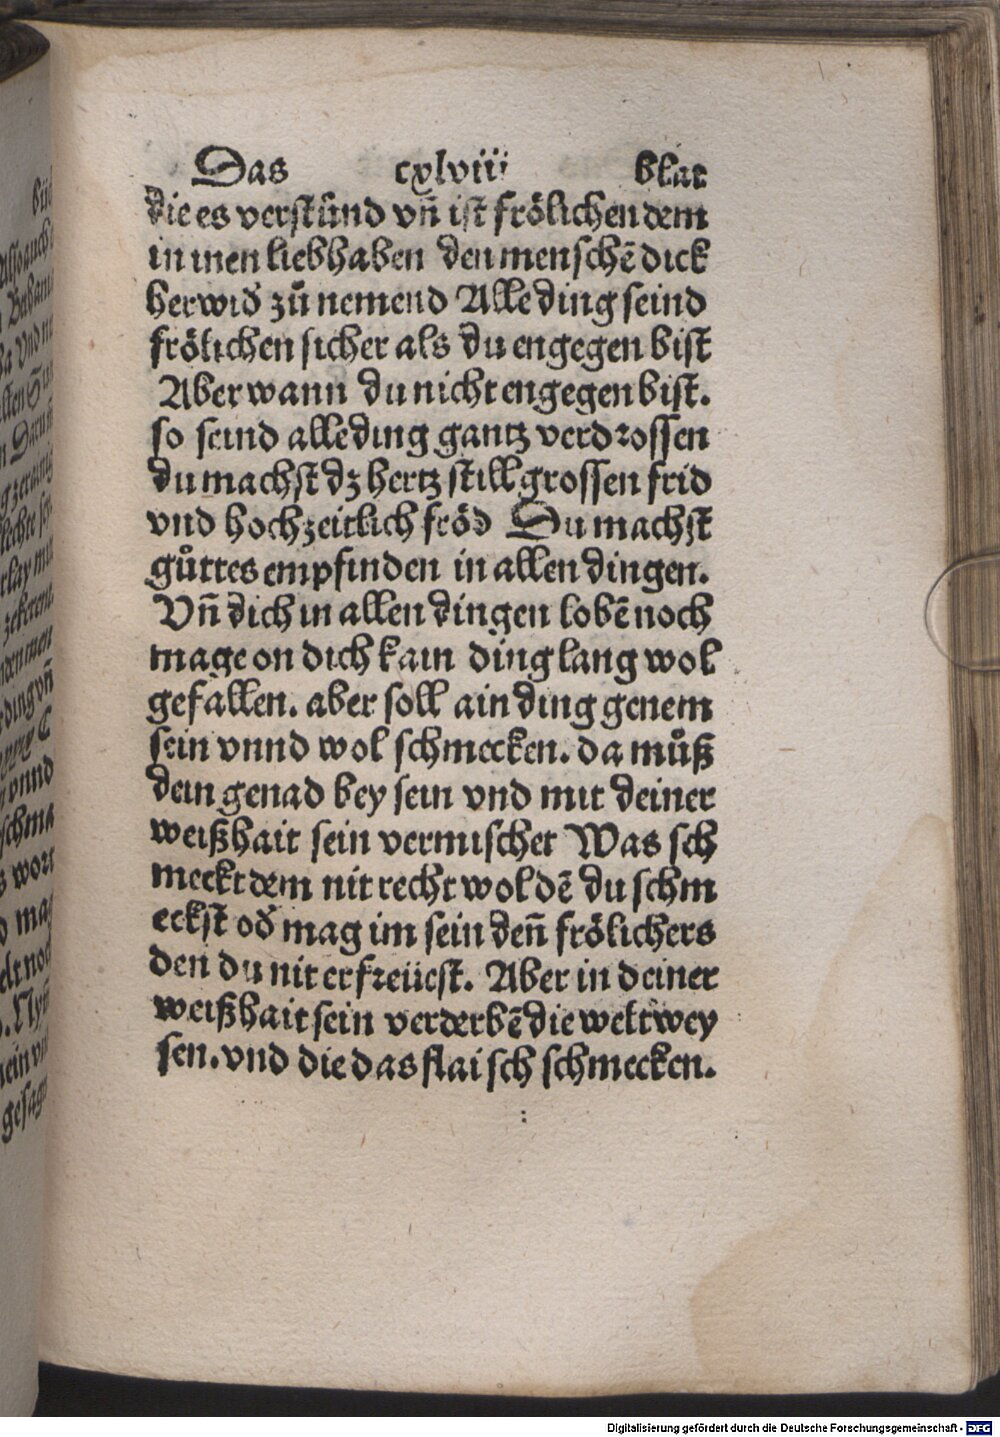 Das cxlviii blat
die es verstünd vñ ist frölichen dem
in inen liebhaben den menschẽ dick
herwid̕ zů nemend Alle ding seind
frölichen sicher als du engegen bist
Aber wann du nicht engegen bist.
so seind alle ding gantz verdrossen
du machst dz hertz still grossen frid
vnd hochzeitlich fröd Du machst
gůttes empfinden in allen dingen.
Vñ dich in allen dingen lobẽ noch
mage on dich kain ding lang wol
gefallen. aber soll ain ding genem
sein vnnd wol schmecken. da můß
dein genad bey sein vnd mit deiner
weißhait sein vermischet Was sch
meckt dem nit recht wol dẽ du schm
eckst od̕ mag im sein deñ frölichers
den du nit erfreüest. Aber in deiner
weißhait sein verderbẽ die weltwey
sen. vnd die das flaisch schmecken.
Digitalisierung gefördert durch die Deutsche Forschungsgemeinschaft - DFG